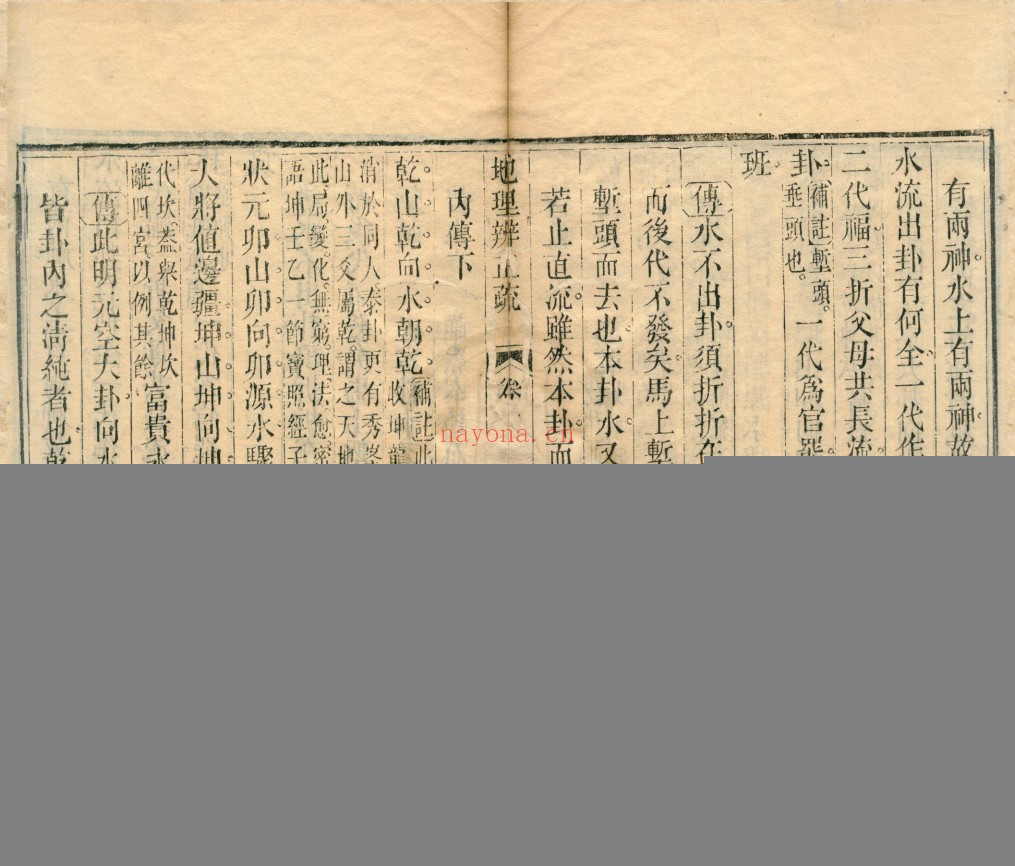 有兩神水上有兩神故
水流出卦有何全一代作
二代福三折父母共長流
卦補註塹頭
垂頭也一代爲官罷
班
傳水不出卦須折折在
而後代不發矣馬上塹
塹頭而去也本卦水又
若止直流雖然本卦而
地理辨正疏 卷
內傳下
乾山乾向水朝乾補註此
收坤龍
消於同人泰卦更有秀峯
山外三爻屬乾謂之天地
此局變化無窮理法愈密
語坤壬乙一節寶照經子
狀元卯山卯向卯源水驟
大將值邊疆坤山坤向坤
代坎蓋舉乾坤坎
離四宮以例其餘富貴永
傳此明元空大卦向水
皆卦內之清純者也乾
nayona.cn